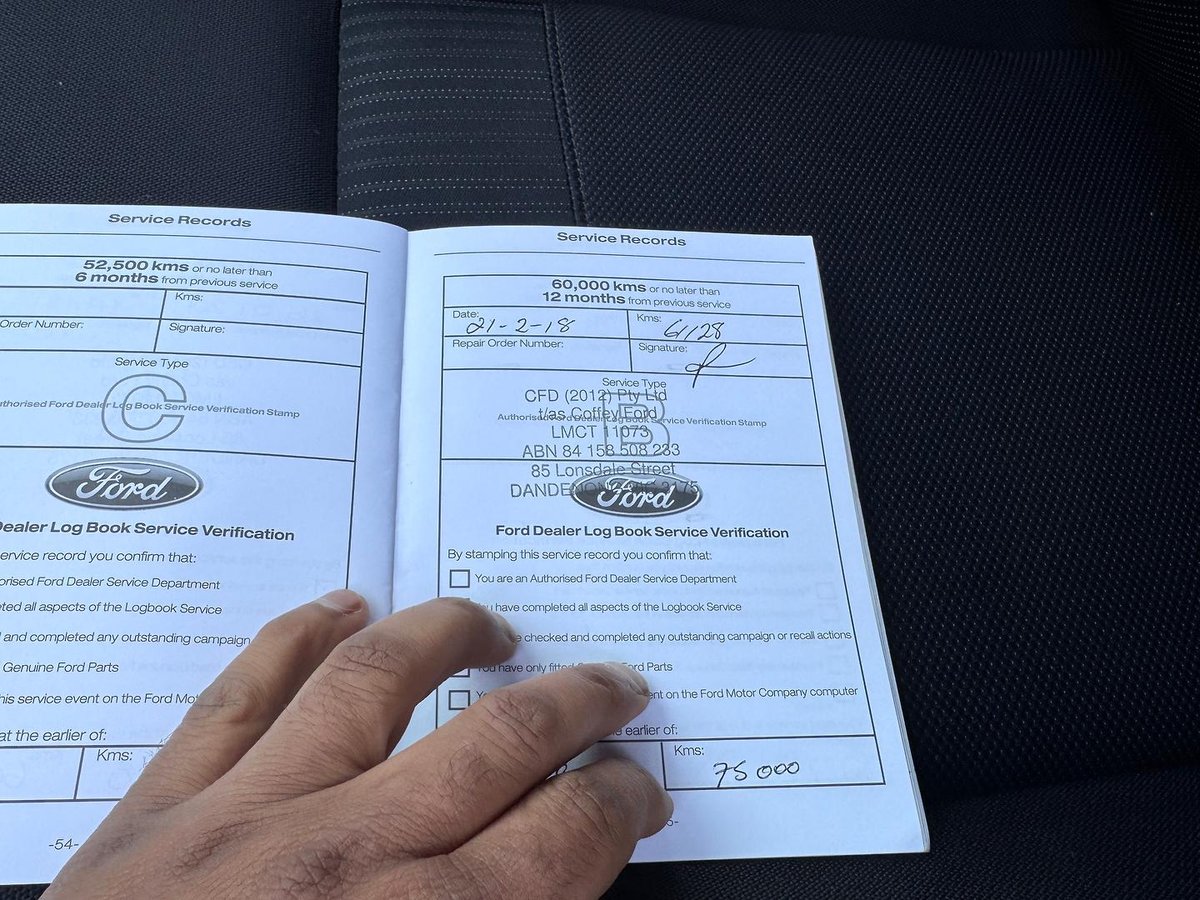 Service Records
52,500 kms or no later than
6 months from previous service
Kms:
Order Number:
Signature:
Service Type
C
Authorised Ford Dealer Log Book Service Verification Stamp
Ford
Dealer Log Book Service Verification
service record you confirm that:
Authorised Ford Dealer Service Department
completed all aspects of the Logbook Service
and completed any outstanding campaign
Genuine Ford Parts
this service event on the Ford
at the earlier of:
Kms:
-54-
Service Records
60,000 kms or no later than
12 months from previous service
Date: 21-2-18
Kms: 61128
Repair Order Number:
Signature:
Service Type
B
CFD (2012) Pty Ltd
t/as Coffey Ford
Authorised Ford Dealer Log Book Service Verification Stamp
LMCT 11073
ABN 84 158 508 233
85 Lonsdale Street
DANDENONG 3175
Ford
Ford Dealer Log Book Service Verification
By stamping this service record you confirm that:
You are an Authorised Ford Dealer Service Department
You have completed all aspects of the Logbook Service
checked and completed any outstanding campaign or recall actions
You have only fitted Ford Parts
on the Ford Motor Company computer
earlier of:
Kms: 75 000